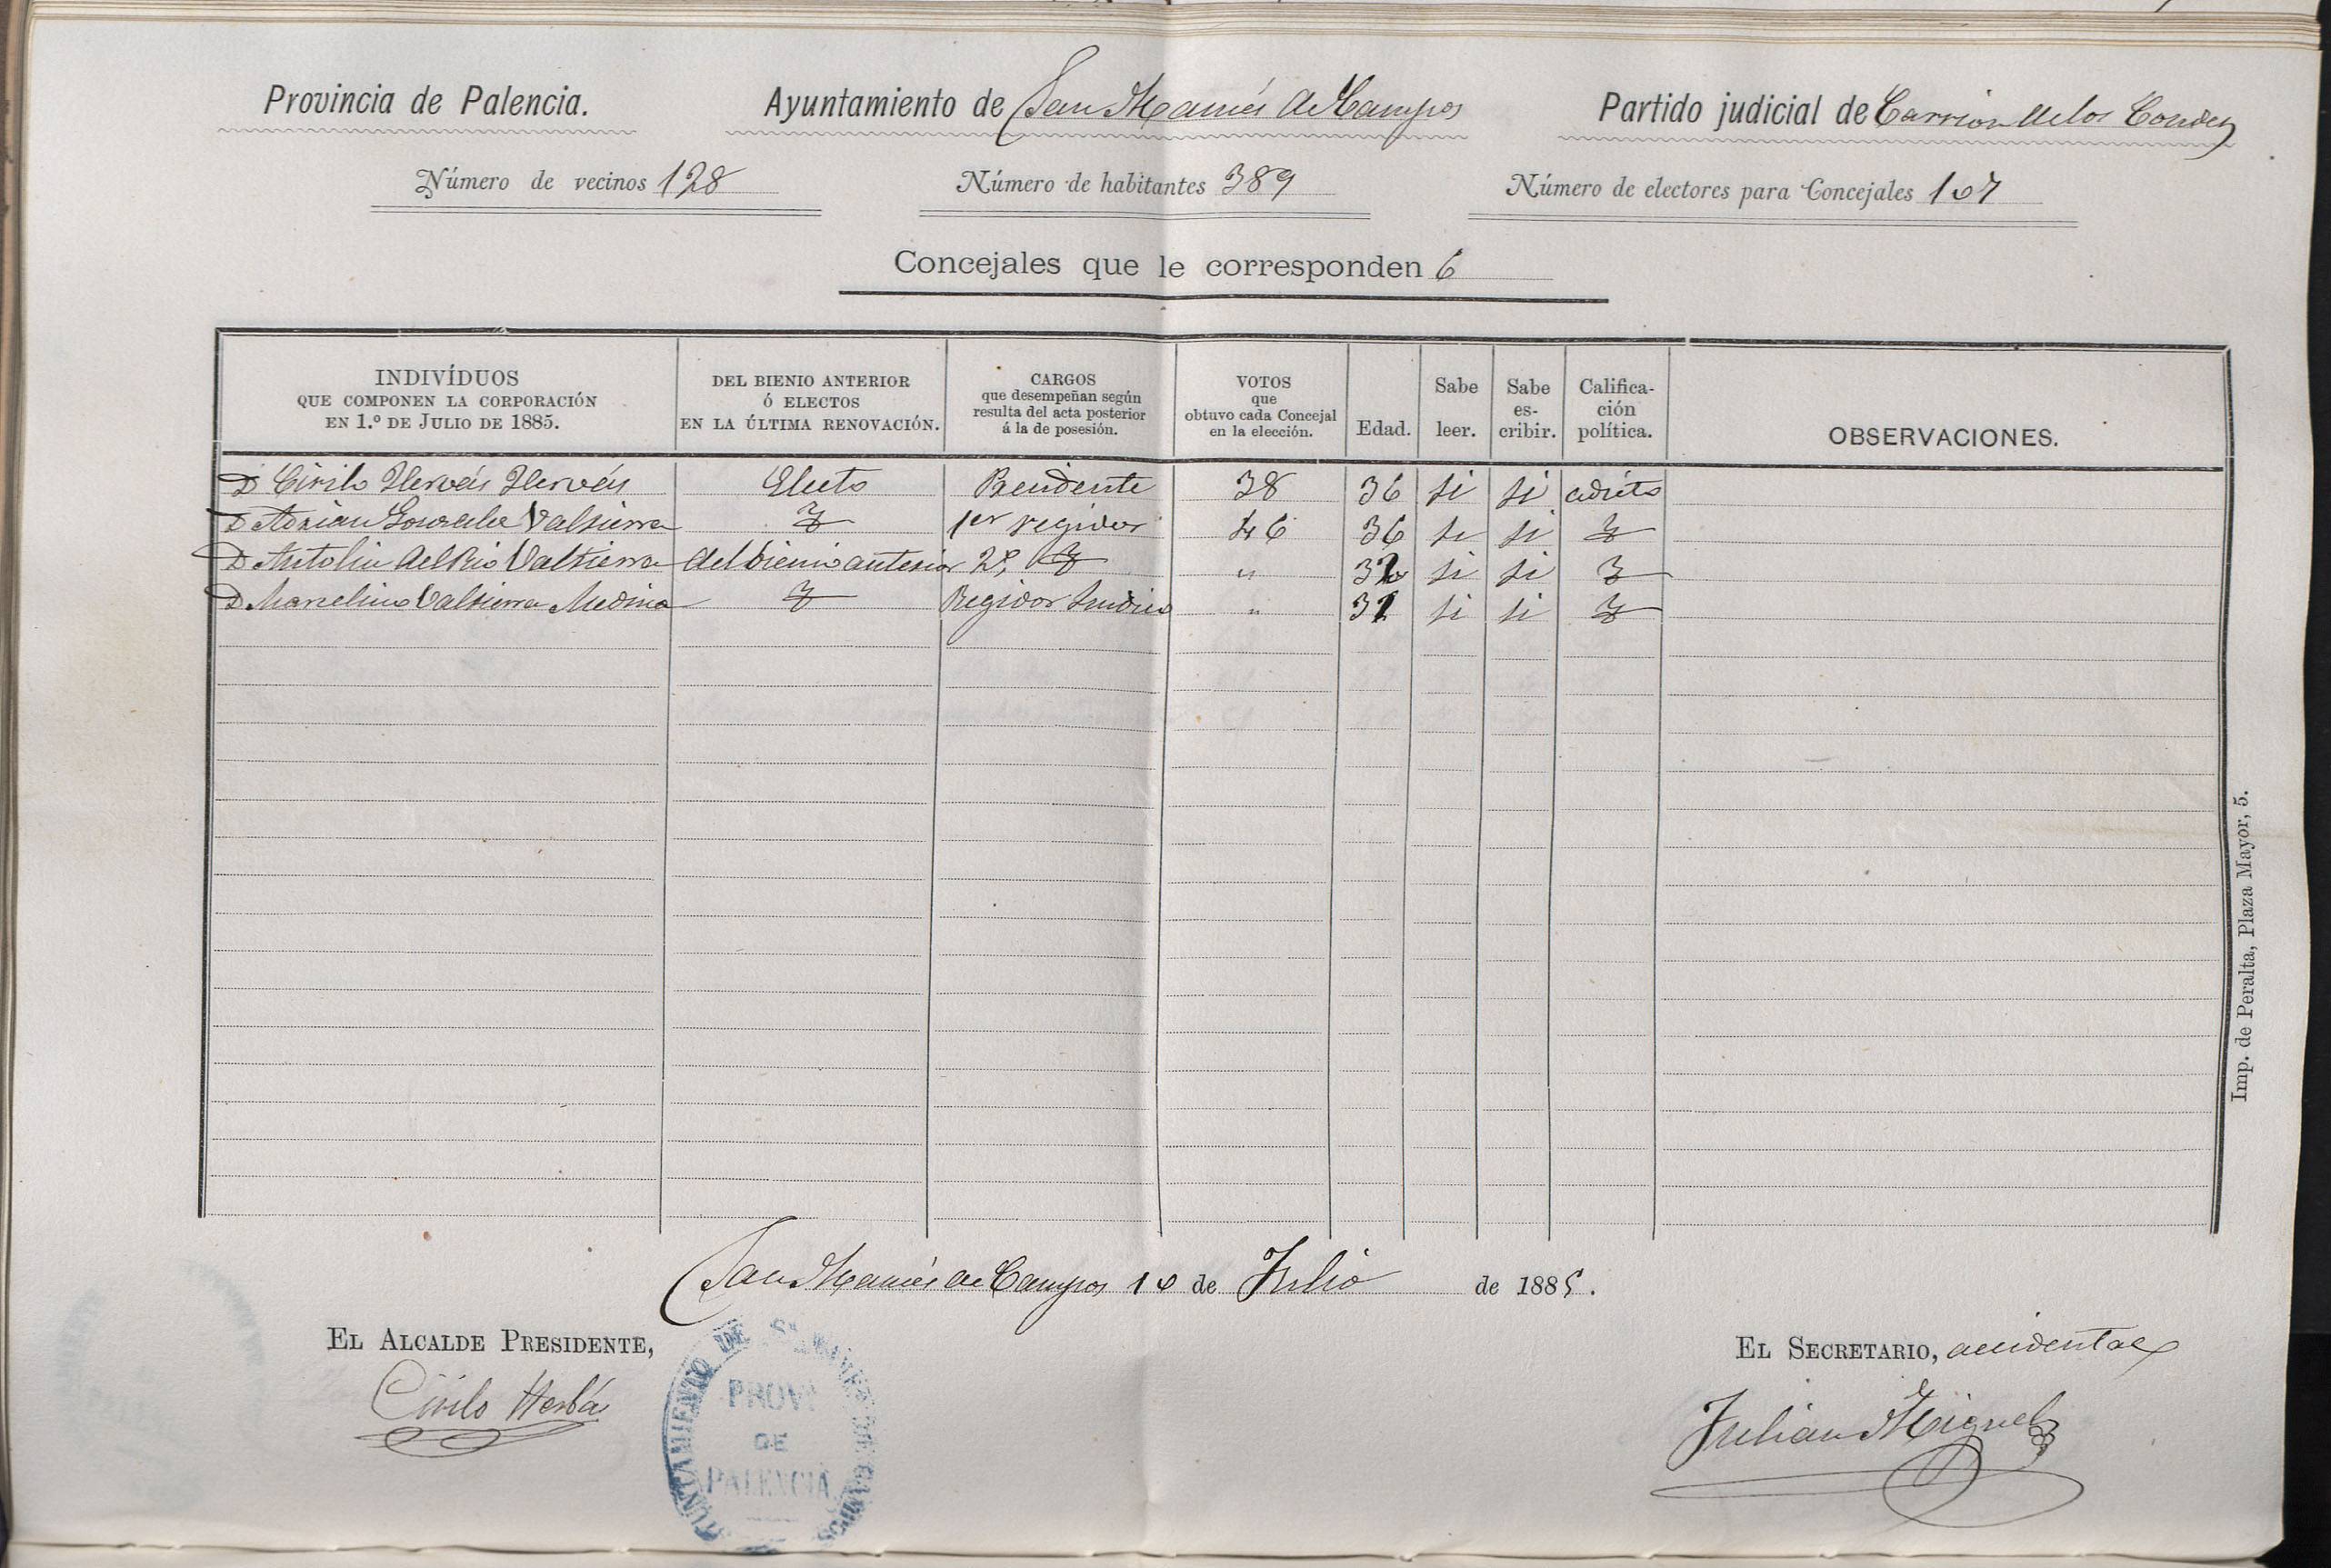 Provincia de Palencia. Ayuntamiento de San Mamés de Campos Partido judicial de Carrion de los Condes
Número de vecinos 128 Número de habitantes 389 Número de electores para Concejales 107
Concejales que le corresponden 6
INDIVÍDUOS QUE COMPONEN LA CORPORACIÓN EN 1.º DE JULIO DE 1885. DEL BIENIO ANTERIOR Ó ELECTOS EN LA ÚLTIMA RENOVACIÓN. CARGOS que desempeñan según resulta del acta posterior á la de posesión. VOTOS que obtuvo cada Concejal en la elección. Edad. Sabe leer. Sabe es-cribir. Califica-ción política. OBSERVACIONES.
D Cirilo Hervás Hervás Electo Presidente 38 36 si si adicto
D Adrian Gonzalez Valtierra 1er regidor 46 36 si si
D Antolin del Rio Valtierra del bienio anterior 2º " si si
D Marcelino Valtierra Medina Regidor Sindico " si si
San Mamés de Campos 10 de Julio de 1885.
EL ALCALDE PRESIDENTE, EL SECRETARIO, accidental
Cirilo Herbás Julian Miguel
AYUNTAMIENTO DE S. MAMES DE CAMPOS
PROVª
DE
PALENCIA
Imp. de Peralta, Plaza Mayor, 5.